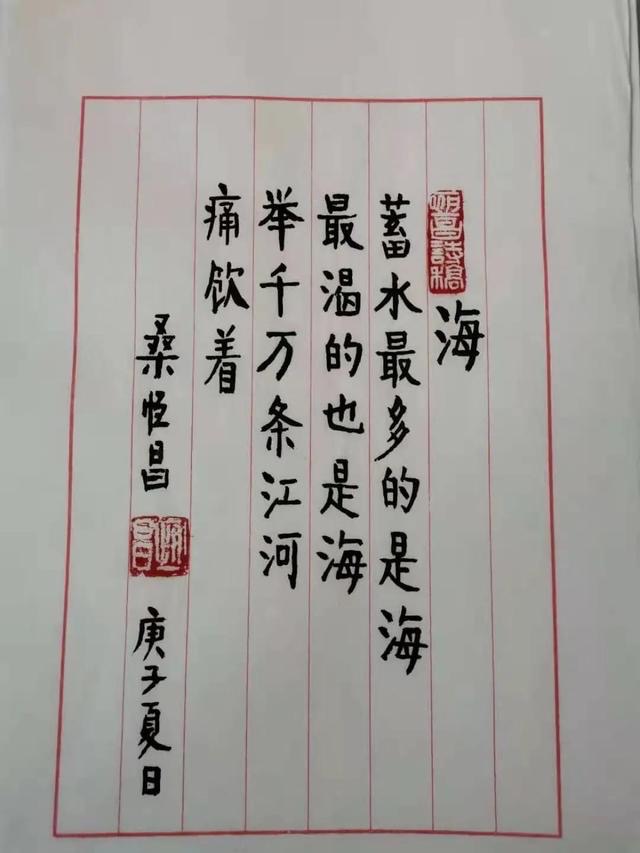 海
蓄水最多的是海
最渴的也是海
举千万条江河
痛饮着
桑恒昌
庚子夏日